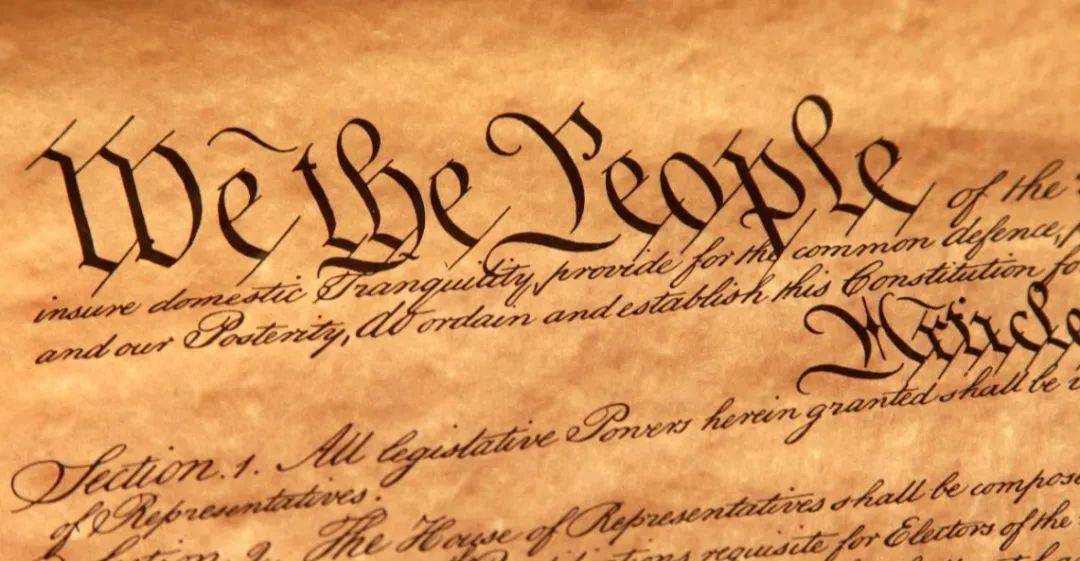 We the People of the
insure domestic Tranquility, provide for the common defence,
and our Posterity, do ordain and establish this Constitution fo
Article
Section. 1. All legislative Powers herein granted shall be
of Representatives.
Section. 2. The House of Representatives shall be compose
requisite for Electors of the